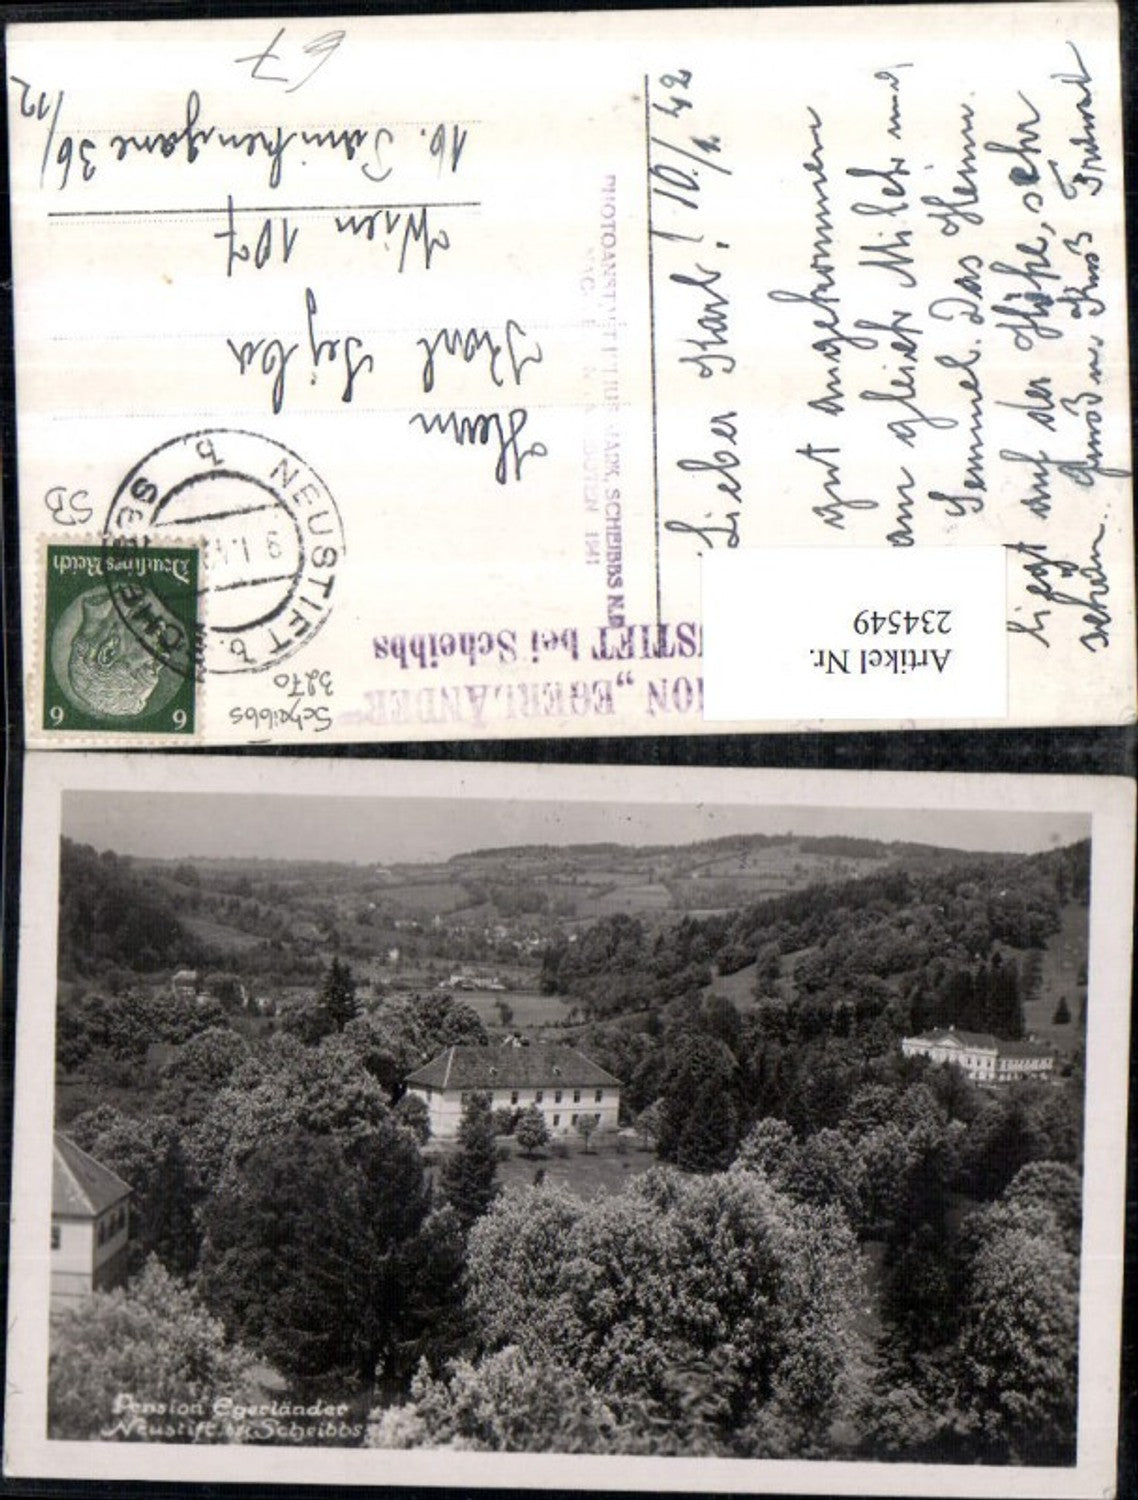 Lieber Karl! 10./1. 42
gut angekommen
am gleich Milch und
Semmel. Das Heim
liegt auf der Höhe, sehr
schön. Gruß u. Kuß
Herrn
Karl
Wien 107
16. 36/
/12
67
PHOTOANSTALT SCHEIBBS N.D.
1941
PENSION „EGERLÄNDER"
NEUSTIFT bei Scheibbs
NEUSTIFT b.
SCHEIBBS
b
Deutsches Reich
6 6
SB
Scheibbs
3270
Artikel Nr.
234549
Pension Egerländer
Neustift bei Scheibbs